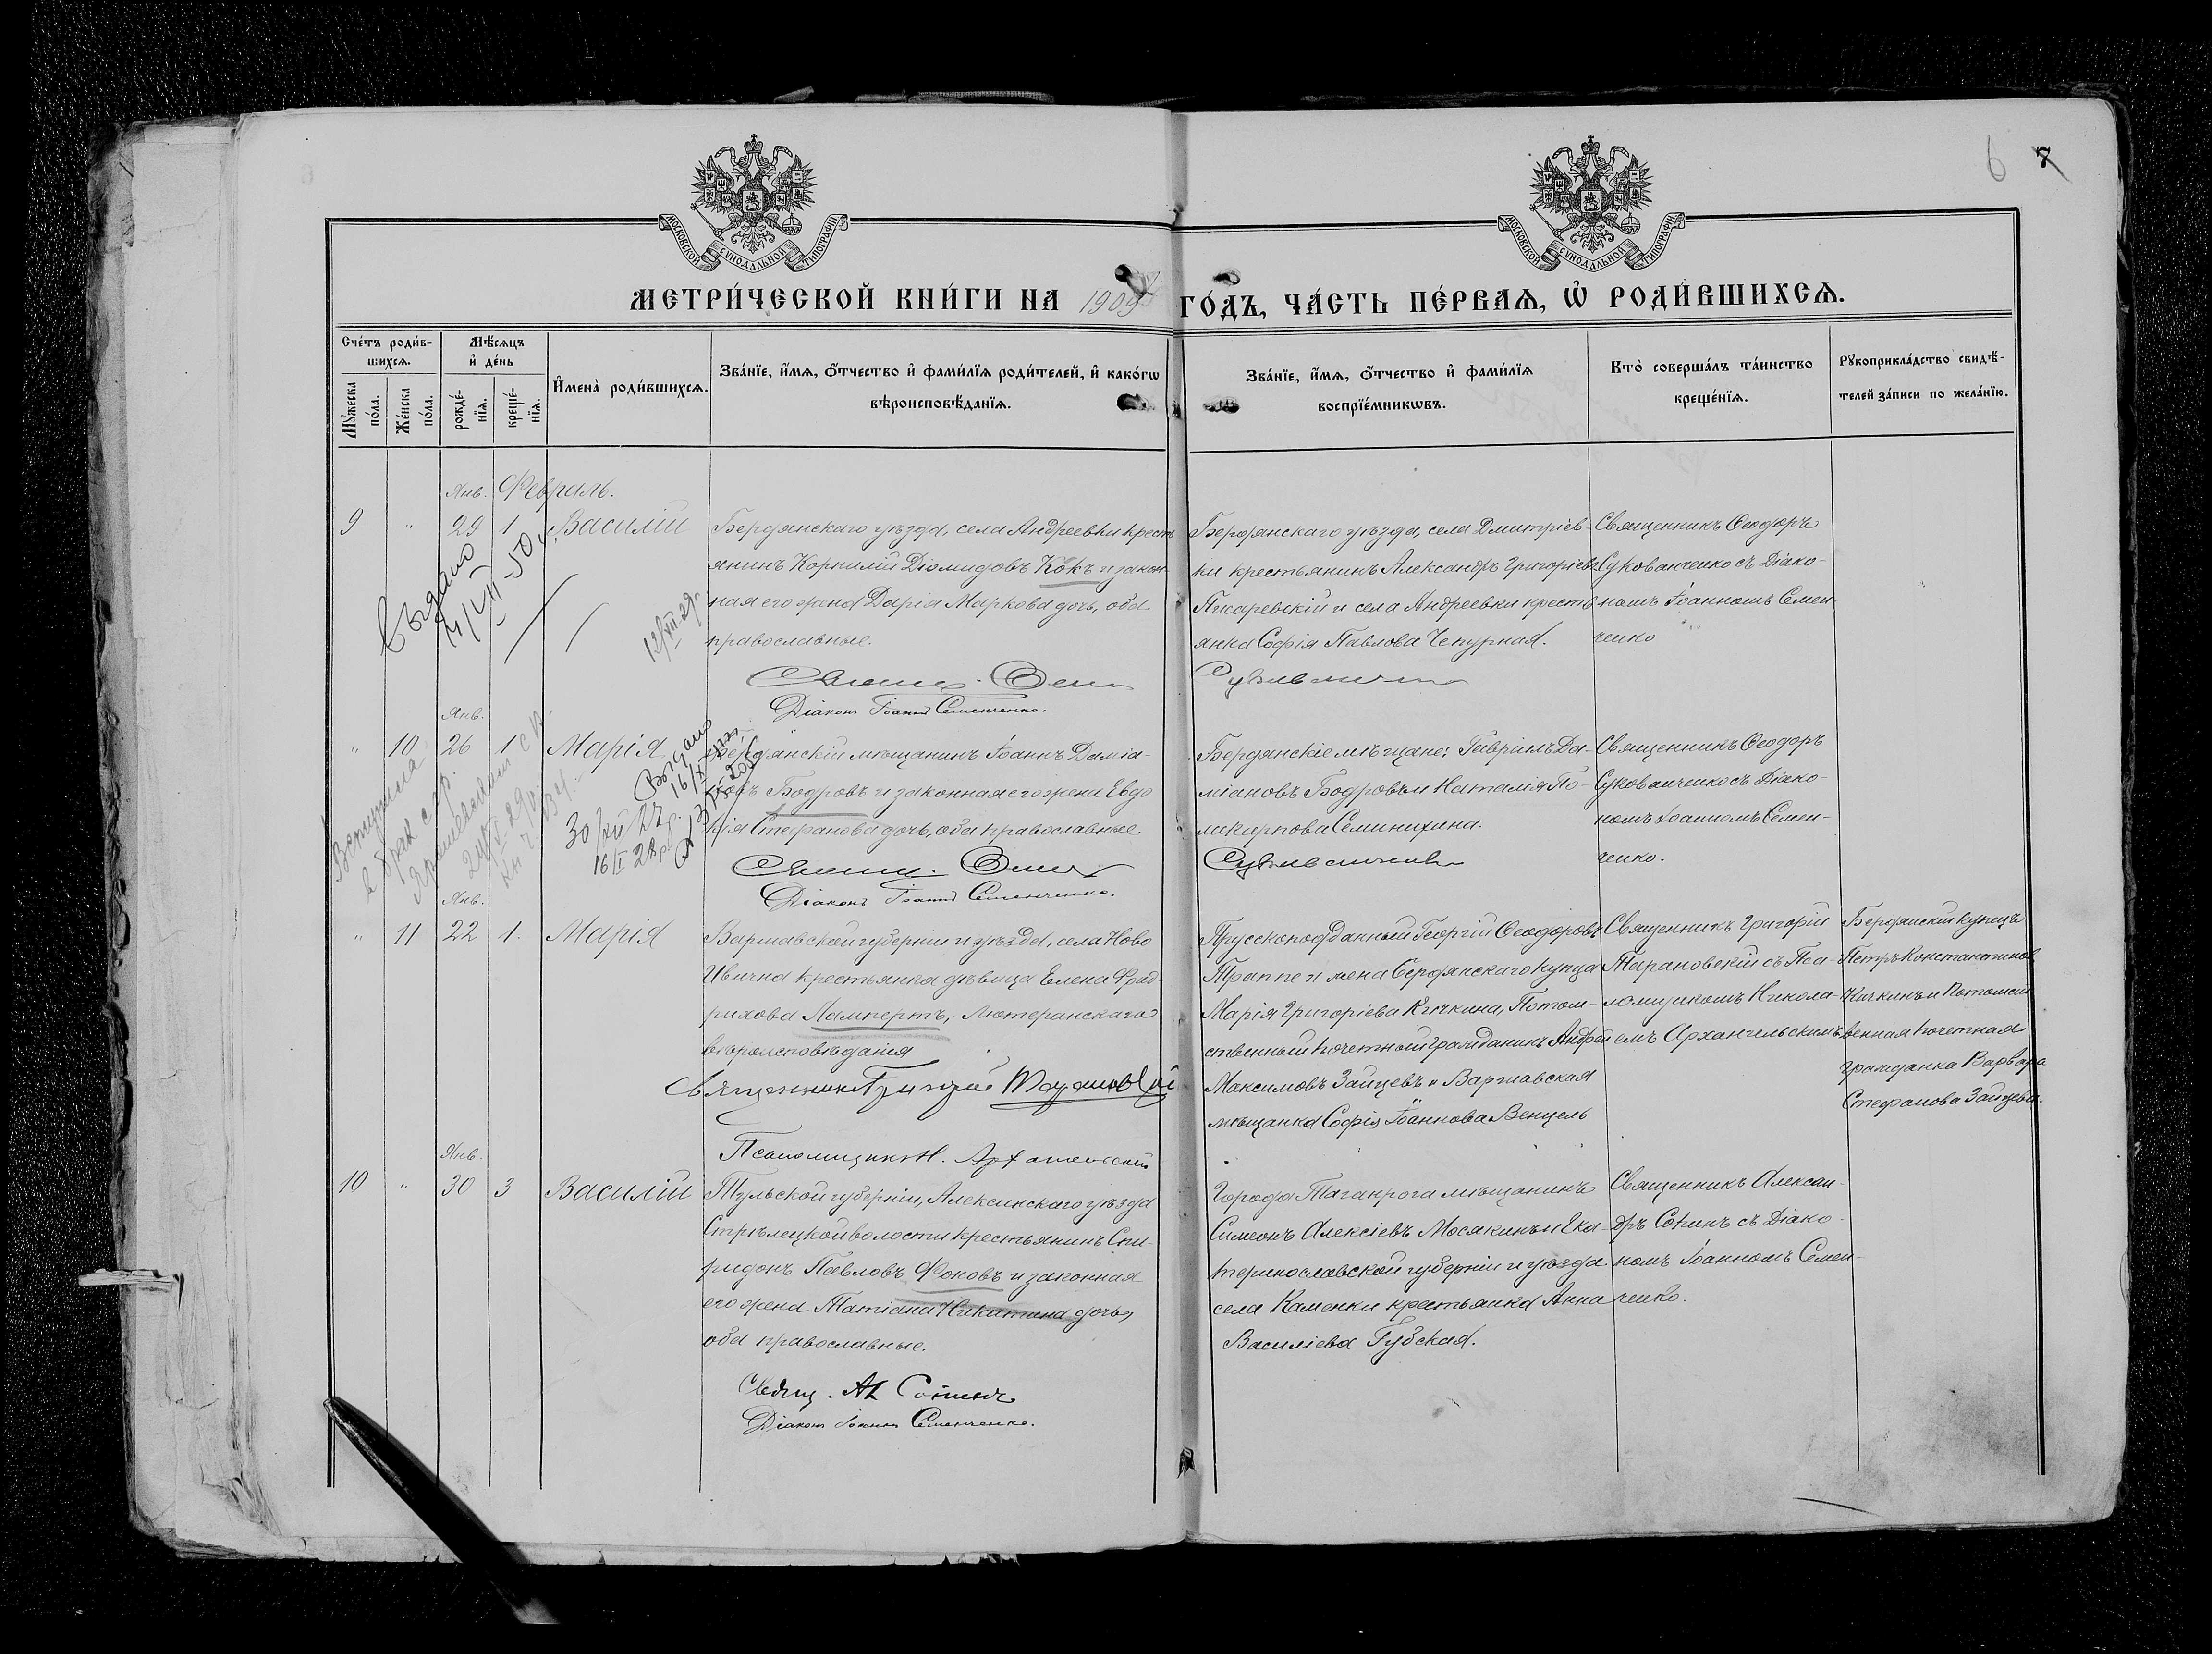 6 7
МОСКОВСКОЙ СѴНОДАЛЬНОЙ ТИПОГРАФІИ
МОСКОВСКОЙ СѴНОДАЛЬНОЙ ТИПОГРАФІИ
МЕТРИ́ЧЕСКОЙ КНИ́ГИ НА 1909 ГО́ДЪ, ЧА́СТЬ ПЕ́РВАѦ, Ѡ҆ РОДИ́ВШИХСѦ.
Сче́тъ роди́в-
шихсѧ.
Мꙋ́жеска по́ла.
Же́нска по́ла.
Мѣ́сѧцъ
и҆ де́нь
рожде́-
нїѧ.
креще́-
нїѧ.
И҆мена̀ роди́вшихсѧ.
Зва́нїе, и҆́мѧ, ѻ҆́тчество и҆ фами́лїѧ роди́телей, и҆ како́гѡ
вѣроисповѣ́данїѧ.
Зва́нїе, и҆́мѧ, ѻ҆́тчество и҆ фами́лїѧ
воспрїе́мникѡвъ.
Кто̀ соверша́лъ та́инство
креще́нїѧ.
Рꙋкоприкла́дство свидѣ́-
телей за́писи по жела́нїю.
Янв. Февраль.
9 " 29 1 Василій
Бердянскаго уѣзда, села Андреевки кресть
янинъ Корнилій Діомидовъ Кокъ и закон-
ная его жена Дарія Маркова дочь, оба
православные.
Діаконъ Іоаннъ Семенченко.
Бердянскаго уѣзда, села Дмитріев-
ки крестьянинъ Александръ Григоріевъ
Писаревскій и села Андреевки кресть
янка Софія Павлова Чепурная.
Священникъ Ѳеодоръ
Сукованченко съ Діако-
номъ Іоанномъ Семен
ченко
Выдано
4/VII-50
12/VII-29г.
Янв.
" 10 26 1 Марія
Бердянскій мѣщанинъ Іоаннъ Даміа-
новъ Бодровъ и законная его жена Евдо
кія Стефанова дочь, оба православные.
Діаконъ Іоаннъ Семенченко.
Бердянскіе мѣщане: Гавріилъ Да-
міановъ Бодровъ и Наталія По-
ликарпова Семинихина.
Священникъ Ѳеодоръ
Сукованченко съ Діако-
номъ Іоанномъ Семен-
ченко.
Вступила
в брак с гр.
Выдано
30/VII/27
Янв.
" 11 22 1. Марія
Варшавской губерніи и уѣзда, села Ново
Ивична крестьянка дѣвица Елена Фрид-
рихова Лампертъ, Лютеранскаго
вѣроисповѣданія
Священник Григорій Тарановскій
Псаломщикъ Н. Архангельскій
Прусскоподданный Георгій Ѳеодоровъ
Траппе и жена Бердянскаго купца
Марія Григоріева Кичкина, Потом-
ственный почетный гражданинъ Андрей
Максимовъ Зайцевъ и Варшавская
мѣщанка Софія Іоаннова Венцель
Священникъ Григорій
Тарановскій съ Пса-
ломщикомъ Никола-
емъ Архангельскимъ
Бердянскій купецъ
Петръ Константиновъ
Кичкинъ и Потомст
венная почетная
гражданка Варвара
Стефанова Зайцева.
Янв.
10 " 30 3 Василій
Тульской губерніи, Алексинскаго уѣзда
Стрѣлецкой волости крестьянинъ Спи-
ридонъ Павловъ Фоковъ и законная
его жена Татіана Никитина дочь,
оба православные.
Свящ. Ал Сопинъ
Діаконъ Іоаннъ Семенченко.
Города Таганрога мѣщанинъ
Симеонъ Алексіевъ Мосякинъ и Ека-
теринославской губерніи и уѣзда
села Каменки крестьянка Анна
Василіева Губская.
Священникъ Алексан-
дръ Сопинъ съ Діако-
номъ Іоанномъ Семен-
ченко.